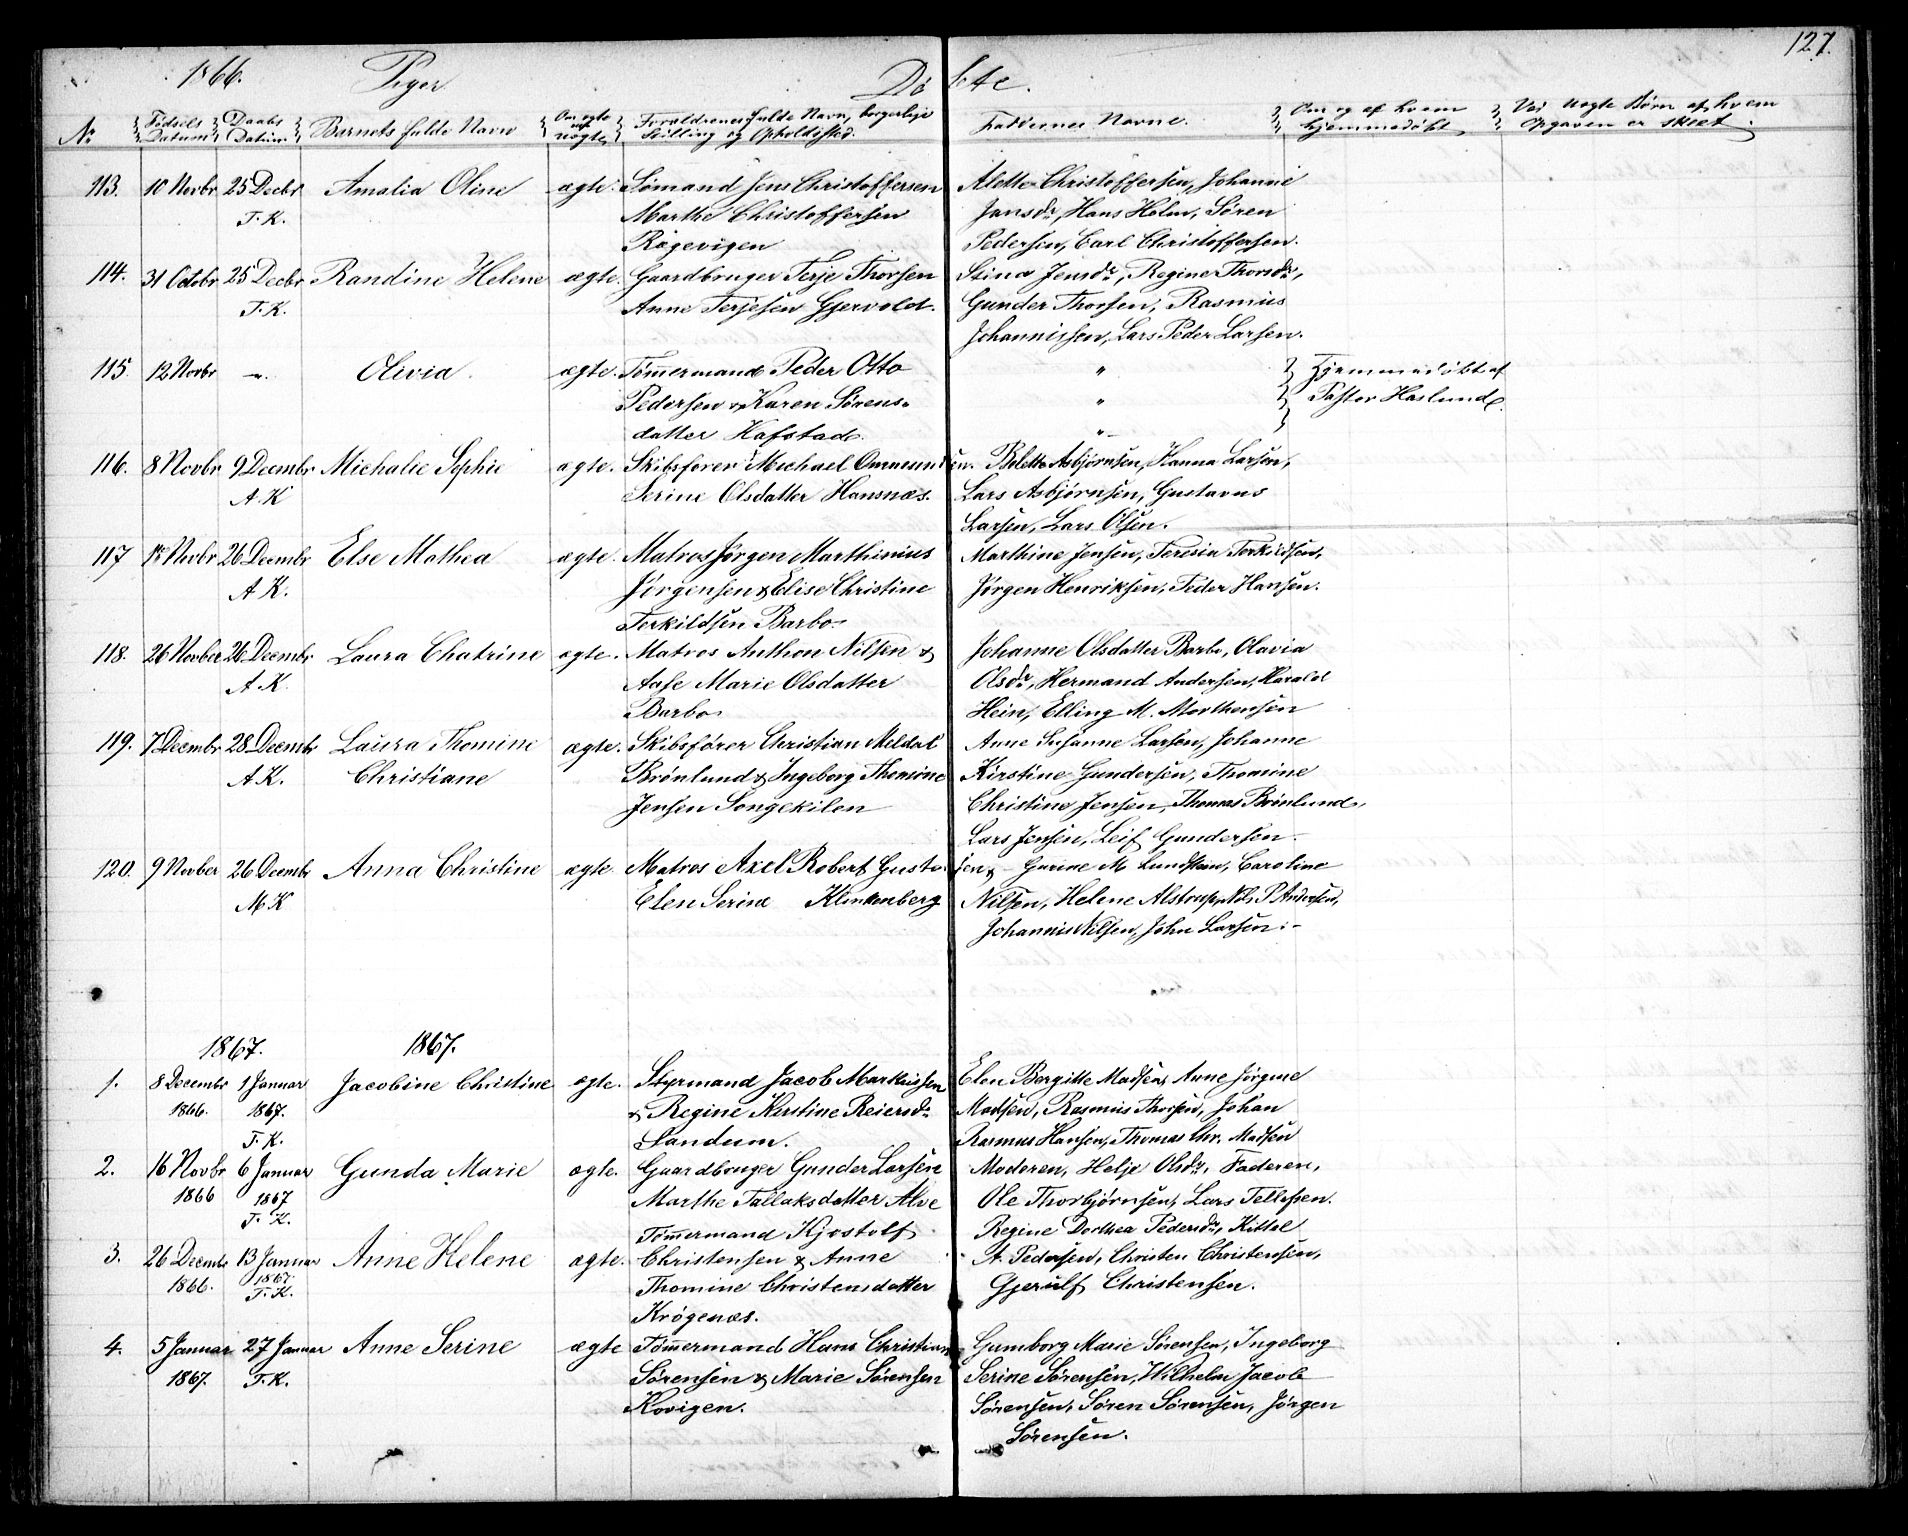 127.
1866. Piger Døbte.
Nr Fødsels Datum Daabs Datum Barnets fulde Navn Om ægte eller uægte Forældrenes fulde Navn, borgerlige Stilling og Opholdssted. Faddernes Navne. Om og af hvem hjemmedøbt Ved uægte Børn af hvem Opgaven er skeet.
113. 10 Novbr 25 Decbr Amalia Oline ægte. Sømand Jens Christoffersen Alette Christoffersen, Johanne
T.K. Marthe Christoffersen Jansdr, Hans Holm, Søren
Rægevigen Pedersen, Carl Christoffersen.
114. 31 Octobr 25 Decbr Randine Helene ægte. Gaardbruger Terje Thorsen Stina Jensdr, Regine Thorsdr,
T.K. Anne Terjesen Gjervold. Gunder Thorsen, Rasmus
Johannissen, Lars Peder Larsen.
115. 12 Novbr -"- Olivia ægte. Tømmermand Peder Otto " Hjemmedøbt af
Pedersen & Karen Sørens- " Pastor Haslund.
datter Hafstad. "
116. 8 Novbr 9 Decembr Michalie Sophie ægte. Skibsfører Michael Ommundsen. Bolette Asbjørnsen, Hanna Larsen,
A.K Serine Olsdatter Hansnæs. Lars Asbjørnsen, Gustavus
Larsen, Lars Olsen.
117 Novbr 26 Decembr Else Mathea ægte. Matros Jørgen Marthinius Marthine Jensen, Teresia Terkildsen,
A K. Jørgensen & Elise Christine Jørgen Henriksen, Peder Hansen.
Terkildsen Barbo
118. 26 Novber 26 Decembr Laura Chatrine ægte. Matros Anthon Nilsen & Johanne Olsdatter Barbo, Olavia
A.K. Aase Marie Olsdatter Olsdr, Hermand Andersen, Harald
Barbo Hein, Elling M. Morthensen
119. 7 Decembr 28 Decembr Laura Thomine ægte. Skibsfører Christian Meldal Anne Susanne Larsen, Johanne
A.K. Christiane Brønlund & Ingeborg Thomine Kirstine Gundersen, Thomine
Jensen Songekilen Christine Jensen, Thomas Brønlund,
Lars Jensen, Leif Gundersen.
120. 9 Novber 26 Decembr Anna Christine ægte. Matros Axel Robert Gustavsen & Gurine M Lundstrøm, Caroline
M.K Elen Serine Klinkenberg Nilsen, Helene Alstrup, Nils P Andersen,
Johannis Nilsen, John Larsen.-
1867. 1867.
1. 8 Decembr 1 Januar Jacobine Christine ægte. Styrmand Jacob Markussen Elen Bergitte Madsen, Anne Jørgine
1866. 1867. & Regine Kirstine Reiersdr Madsen, Rasmus Thorsen, Johan
T.K. Sandum. Rasmus Hansen, Thomas Chr. Madsen
2. 16 Novbr 6 Januar Gunda Marie ægte. Gaardbruger Gunder Larsen Moderen, Helje Olsdr, Faderen,
1866 1867 Marthe Tallaksdatter Alve Ole Thorbjørnsen, Lars Tellefsen.
T.K. Tømmermand Kjøstolf Regine Dorthea Pedersdr, Kittel
3. 26 Decembr 13 Januar Anne Helene ægte. Christensen & Anne A. Pedersen, Christen Christensen,
1866. 1867. Thomine Christensdatter Gjerulf Christensen.
T.K. Krøgenæs.
4. 5 Januar 27 Januar Anne Serine ægte Tømmermand Hans Christian Gumborg Marie Sørensen, Ingeborg
1867. T.K. Sørensen & Marie Sørensen Serine Sørensen, Wilhelm Jacob
Kovigen. Sørensen, Søren Sørensen, Jørgen
Sørensen.